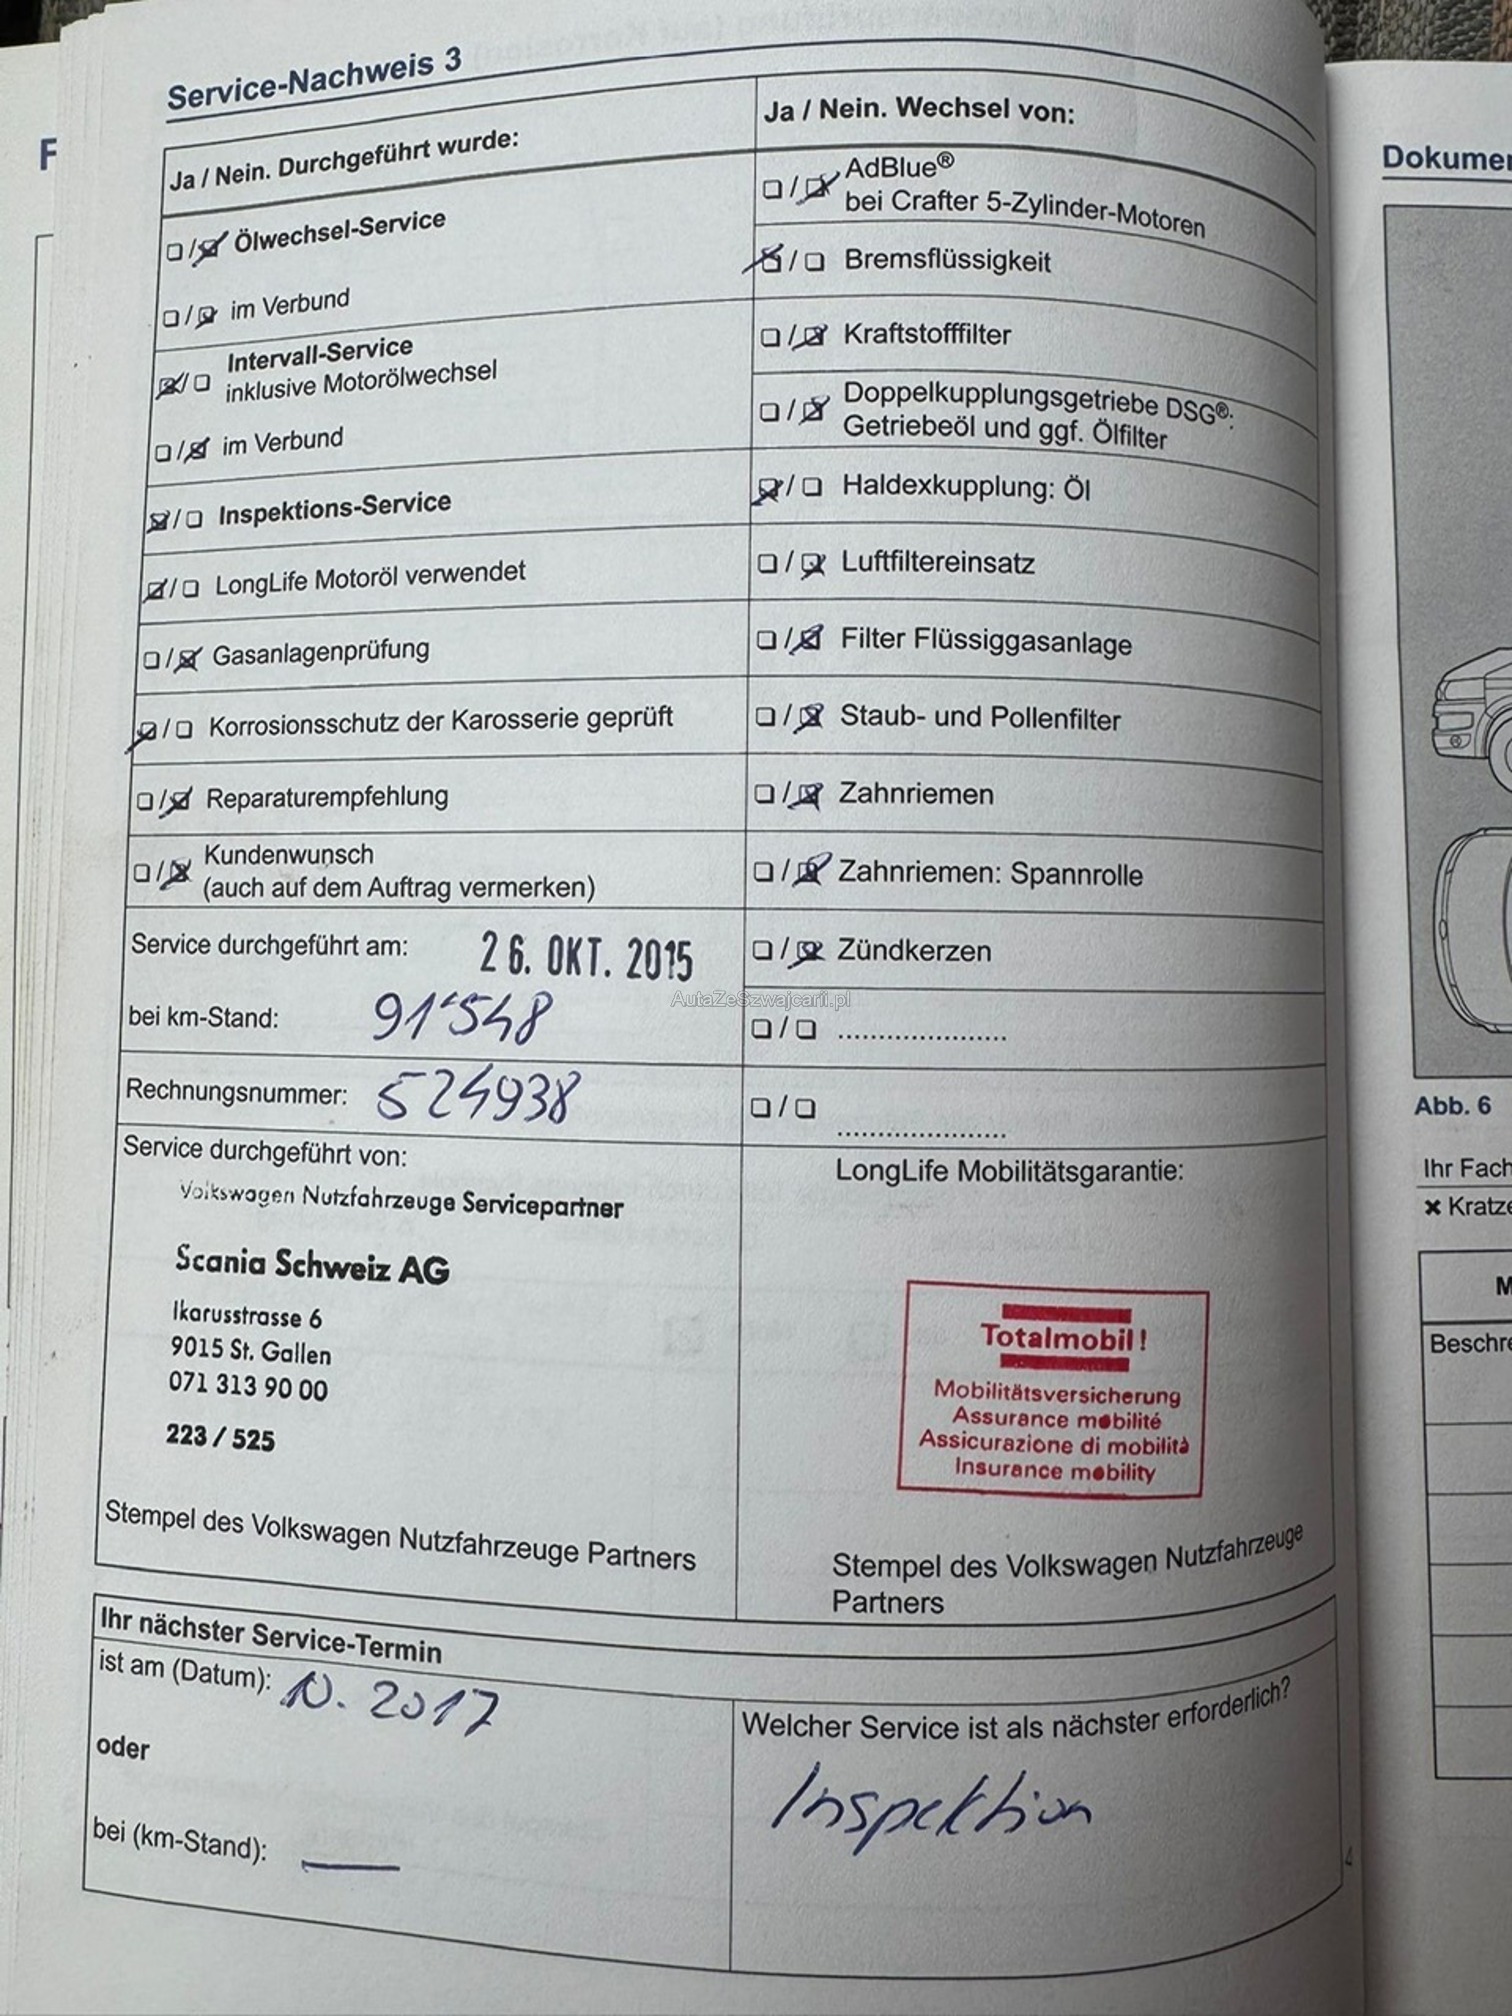 Service-Nachweis 3
Ja / Nein. Durchgeführt wurde:
☐ / ☒ Ölwechsel-Service
☐ / ☒ im Verbund
☒ / ☐ Intervall-Service
inklusive Motorölwechsel
☐ / ☒ im Verbund
☒ / ☐ Inspektions-Service
☒ / ☐ LongLife Motoröl verwendet
☐ / ☒ Gasanlagenprüfung
☒ / ☐ Korrosionsschutz der Karosserie geprüft
☐ / ☒ Reparaturempfehlung
☐ / ☒ Kundenwunsch
(auch auf dem Auftrag vermerken)
Service durchgeführt am: 26. OKT. 2015
bei km-Stand: 91'548
Rechnungsnummer: 524938
Service durchgeführt von:
Volkswagen Nutzfahrzeuge Servicepartner
Scania Schweiz AG
Ikarusstrasse 6
9015 St. Gallen
071 313 90 00
223 / 525
Stempel des Volkswagen Nutzfahrzeuge Partners
Ja / Nein. Wechsel von:
☐ / ☒ AdBlue®
bei Crafter 5-Zylinder-Motoren
☒ / ☐ Bremsflüssigkeit
☐ / ☒ Kraftstofffilter
☐ / ☒ Doppelkupplungsgetriebe DSG®:
Getriebeöl und ggf. Ölfilter
☒ / ☐ Haldexkupplung: Öl
☐ / ☒ Luftfiltereinsatz
☐ / ☒ Filter Flüssiggasanlage
☐ / ☒ Staub- und Pollenfilter
☐ / ☒ Zahnriemen
☐ / ☒ Zahnriemen: Spannrolle
☐ / ☒ Zündkerzen
☐ / ☐ .....................
☐ / ☐ .....................
LongLife Mobilitätsgarantie:
Totalmobil!
Mobilitätsversicherung
Assurance mobilité
Assicurazione di mobilità
Insurance mobility
Stempel des Volkswagen Nutzfahrzeuge
Partners
Ihr nächster Service-Termin
ist am (Datum): 10. 2017
oder
bei (km-Stand): —
Welcher Service ist als nächster erforderlich?
Inspektion
AutaZeSzwajcarii.pl
F
Dokumen
Abb. 6
Ihr Fach
× Kratze
M
Beschre